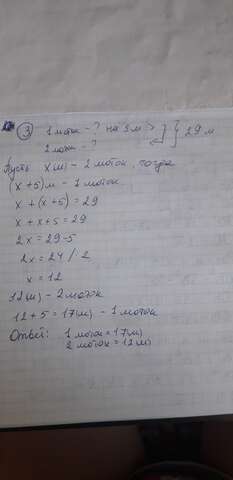 ③ 1 моток - ? на 5 м > } 29 м
2 моток - ?
Пусть x (м) - 2 моток, тогда
(x+5) м - 1 моток
x + (x+5) = 29
x + x + 5 = 29
2x = 29 - 5
2x = 24 / 2
x = 12
12 (м) - 2 моток
12 + 5 = 17 (м) - 1 моток
Ответ: 1 моток = 17 (м)
2 моток = 12 (м)